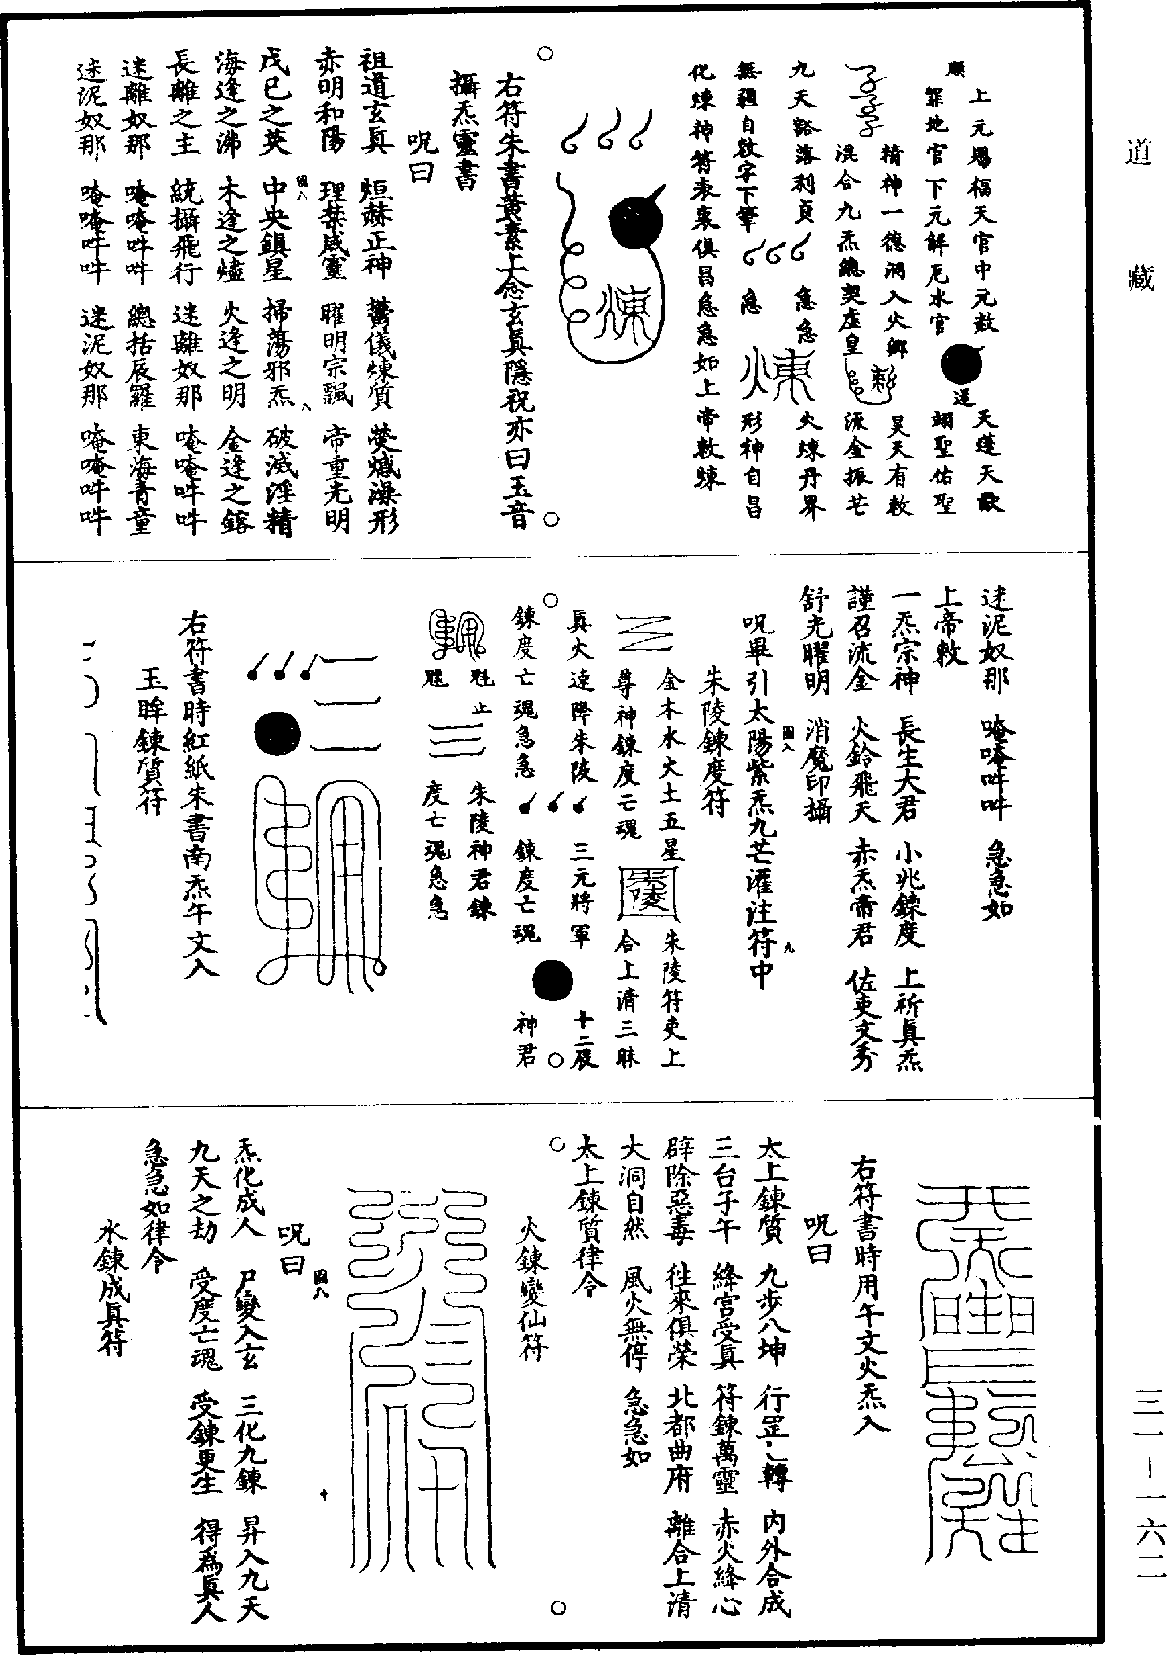 道藏
三一－一六二
順
上元賜福天官中元赦
罪地官下元解厄水官
逆
天蓬天猷
翊聖佑聖
精神一德洞入火鄉
混合九炁總契虛皇
昊天有敕
流金振芒
九天豁落利貞
急急
火煉丹界
無疆自敕字下筆
急
煉
形神自昌
化煉神符表裏俱昌急急如上帝敕煉
煉
右符朱書黃素上念玄真隱祝亦曰玉音
攝炁靈書
呪曰
祖道玄真 烜赫正神 鬱儀煉質 熒熾澡形
赤明和陽 理禁威靈 曜明宗飄 帝重光明
戊己之英 中央鎮星 掃蕩邪炁 破滅淫精
海逢之沸 木逢之燼 火逢之明 金逢之鎔
長離之主 統攝飛行 迷離奴那 唵唵吽吽
迷離奴那 唵唵吽吽 總括辰羅 東海青童
迷泥奴那 唵唵吽吽 迷泥奴那 唵唵吽吽
迷泥奴那 唵唵吽吽 急急如
上帝敕
一炁宗神 長生大君 小兆鍊度 上祈真炁
謹召流金 火鈴飛天 赤炁帝君 佐吏文秀
舒光曜明 消魔印攝
呪畢引太陽紫炁九芒灌注符中
朱陵鍊度符
金木水火土五星
朱陵符吏上
尊神鍊度亡魂
合上清三昧
真火速降朱陵
三元將軍
十二辰
鍊度亡魂急急
鍊度亡魂
神君
魁
朱陵神君鍊
魁
度亡魂急急
右符書時紅紙朱書南炁午文入
玉眸鍊質符
右符書時用午文火炁入
呪曰
太上鍊質 九步八坤 行罡〻轉 內外合成
三台子午 絳宮受真 符鍊萬靈 赤火絳心
辟除惡毒 往來俱榮 北都曲府 離合上清
大洞自然 風火無停 急急如
太上鍊質律令
火鍊變仙符
呪曰
炁化成人 尸變入玄 三化九鍊 昇入九天
九天之劫 受度亡魂 受鍊更生 得爲真人
急急如律令
水鍊成真符